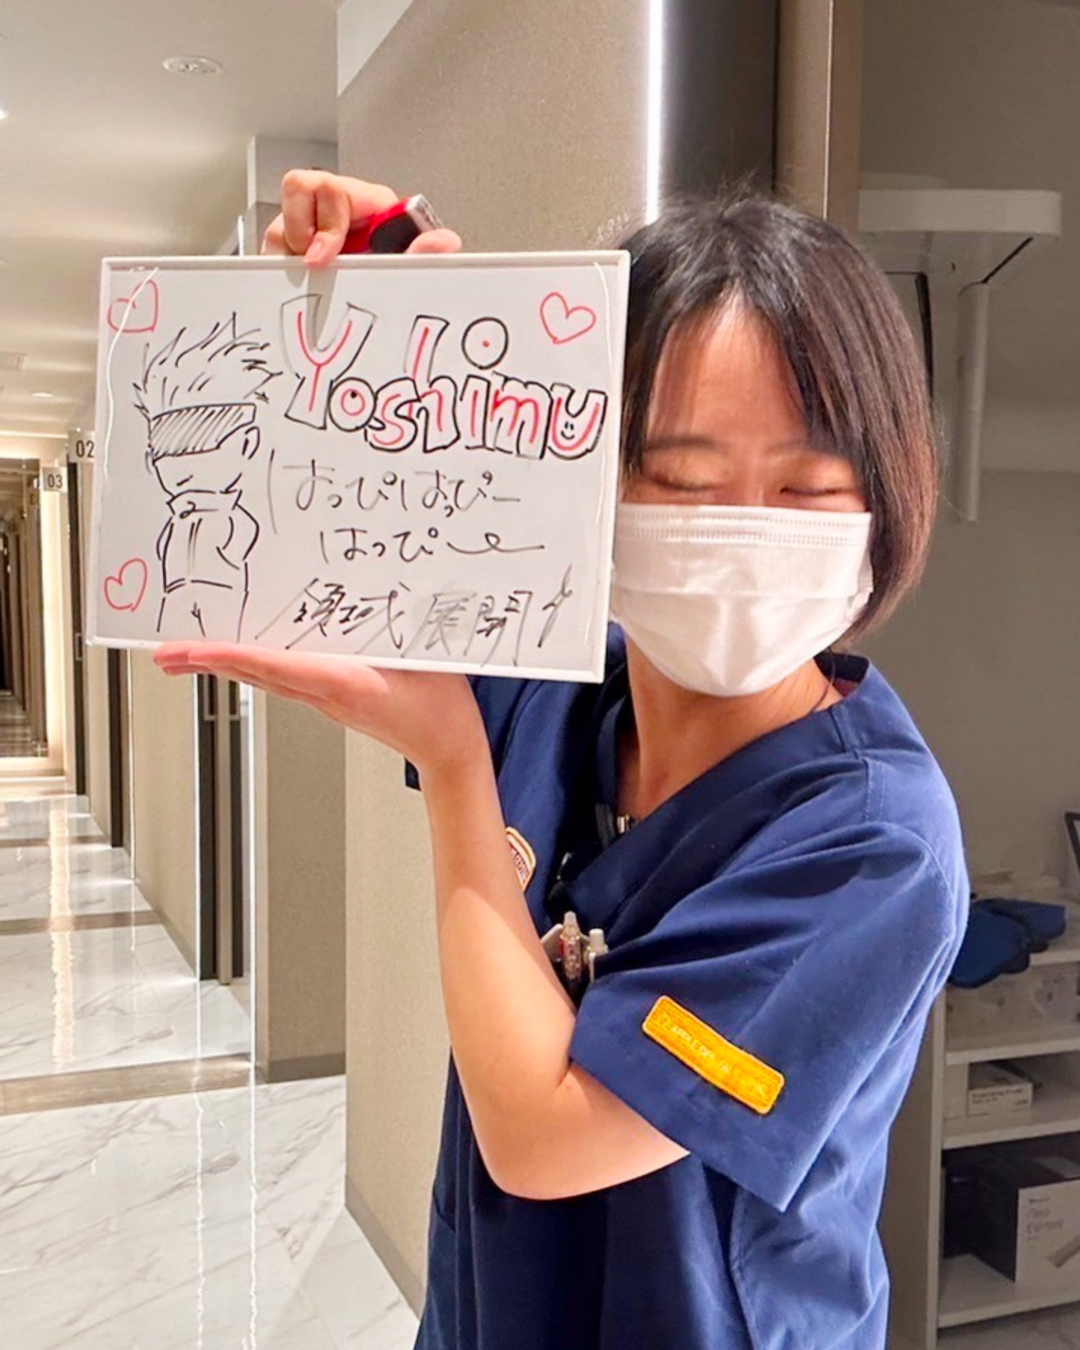 Yoshimu
おっぴはっぴー
はっぴー
領域展開
02
03